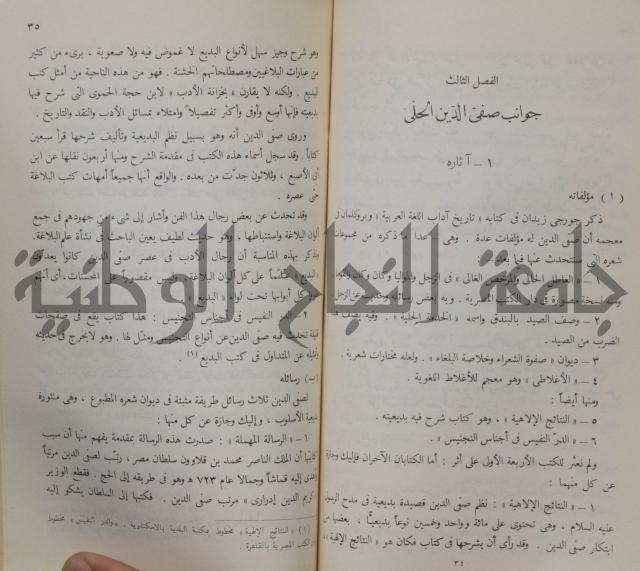 الفصل الثالث
جوانب صفىّ الدّين الحلّى
١ – آثاره
( ١ ) مؤلفاته
ذكر جورجى زيدان فى كتابه « تاريخ آداب اللغة العربية » وبروكلمان فى
معجمه أن صفى الدين له مؤلفات عدة . وهى ما عدا ما ذكره من مجموعات
شعره التى سنتحدث عنها فيما بعد
١ – العاطل الحالى والمرخص الغالى » فى الزجل والمواليا وكان وكان والقوما
ومنه نسخة مصورة فى دار الكتب المصرية . وبه بعض رسائله وحديث عن الزجل
٢ – وصف الصيد بالبندق واسمه « الخدمة الجلية » . وفيه يصف
الضرب من الصيد .
٣ – ديوان « صفوة الشعراء وخلاصة البلغاء » . ولعله مختارات شعرية .
٤ – « الأغلاطى » وهو معجم للأغلاط اللغوية .
ومنها أيضاً :
٥ – « النتائج الإلاهية » ، وهو كتاب شرح فيه بديعيته .
٦ – « الدرّ النفيس فى أجناس التجنيس » .
ولم نعثر للكتب الأربعة الأولى على أثر : أما الكتابان الآخران فإليك وجازة
عن كل منهما :
١ – « النتائج الإلاهية » : نظم صفى الدين قصيدة بديعية فى مدح الرسول
عليه السلام ، وهى تحتوى على مائة وواحد وخمسين نوعاً بديعيًّا ، بعضها من
ابتكار صفى الدين . وقد رأى أن يشرحها فى كتاب فكان هو « النتائج الإلاهية »
٣٤
٣٥
وهو شرح وجيز سهل لأنواع البديع لا غموض فيه ولا صعوبة ، برىء من كثير
من عبارات البلاغيين ومصطلحاتهم الخشنة . فهو من هذه الناحية من أمثل كتب
البديع . ولكنه لا يقارن « بخزانة الأدب » لابن حجة الحموى التى شرح فيها
بديعيته فإنها أوسع وأوفى وأكثر تفصيلاً وامتلاء بمسائل الأدب والنقد والتاريخ .
وروى صفى الدين أنه وهو بسبيل نظم البديعية وتأليف شرحها قرأ سبعين
كتاباً . وقد سجل أسماء هذه الكتب فى مقدمة الشرح ومنها أربعون نقلها عن ابن
أبى الأصبع ، وثلاثون جدّت من بعده . والواقع أنها جميعاً أمهات كتب البلاغة
حتى عصره .
وقد تحدث عن بعض رجال هذا الفن وأشار إلى شىء من جهودهم فى جمع
ألوان البلاغة واستنباطها ، وهو حديث لطيف يعين الباحث فى نشأة علم البلاغة .
ويذكر بهذه المناسبة أن رجال الأدب فى عصر صفى الدين كانوا يعدون
« البديع » علماً على كل ألوان البلاغة وليس مقصوراً على المحسنات، أى أنهم
كل أبوابها تحت لواء « البديع »
٢ – الدرّ النفيس فى أجناس التجنيس : هذا كتاب يقع فى صفحات
قليلة تحدث فيه صفى الدين عن أنواع التجنيس ومثل لها . وهو لا يخرج فى حديثه
وتمثيله عن المتداول فى كتب البديع (١) .
(ب) رسائله
لصفى الدين ثلاث رسائل طريفة مثبتة فى ديوان شعره المطبوع ، وهى منثورة
الأسلوب ، وإليك وجازة عن كل منها :
١ – « الرسالة المهملة » : صدرت هذه الرسالة بمقدمة يفهم منها أن سبب
كتابتها أن الملك الناصر محمد بن قلاوون سلطان مصر ، رتب لصفى الدين مرتباً
إليه قماشاً وجمالا عام ٧٢٣ ه وهو فى طريقه إلى الحج . فقطع الوزير
كريم الدين إدرارى » مرتب صفى الدين . فكتبها إلى السلطان يشكو إليه
(١) « النتائج الإلهية » مخطوط بمكتبة البلدية بالاسكندرية . و« الدر النفيس » مخطوط
الكتب المصرية بالقاهرة .
جامعة النجاح الوطنية